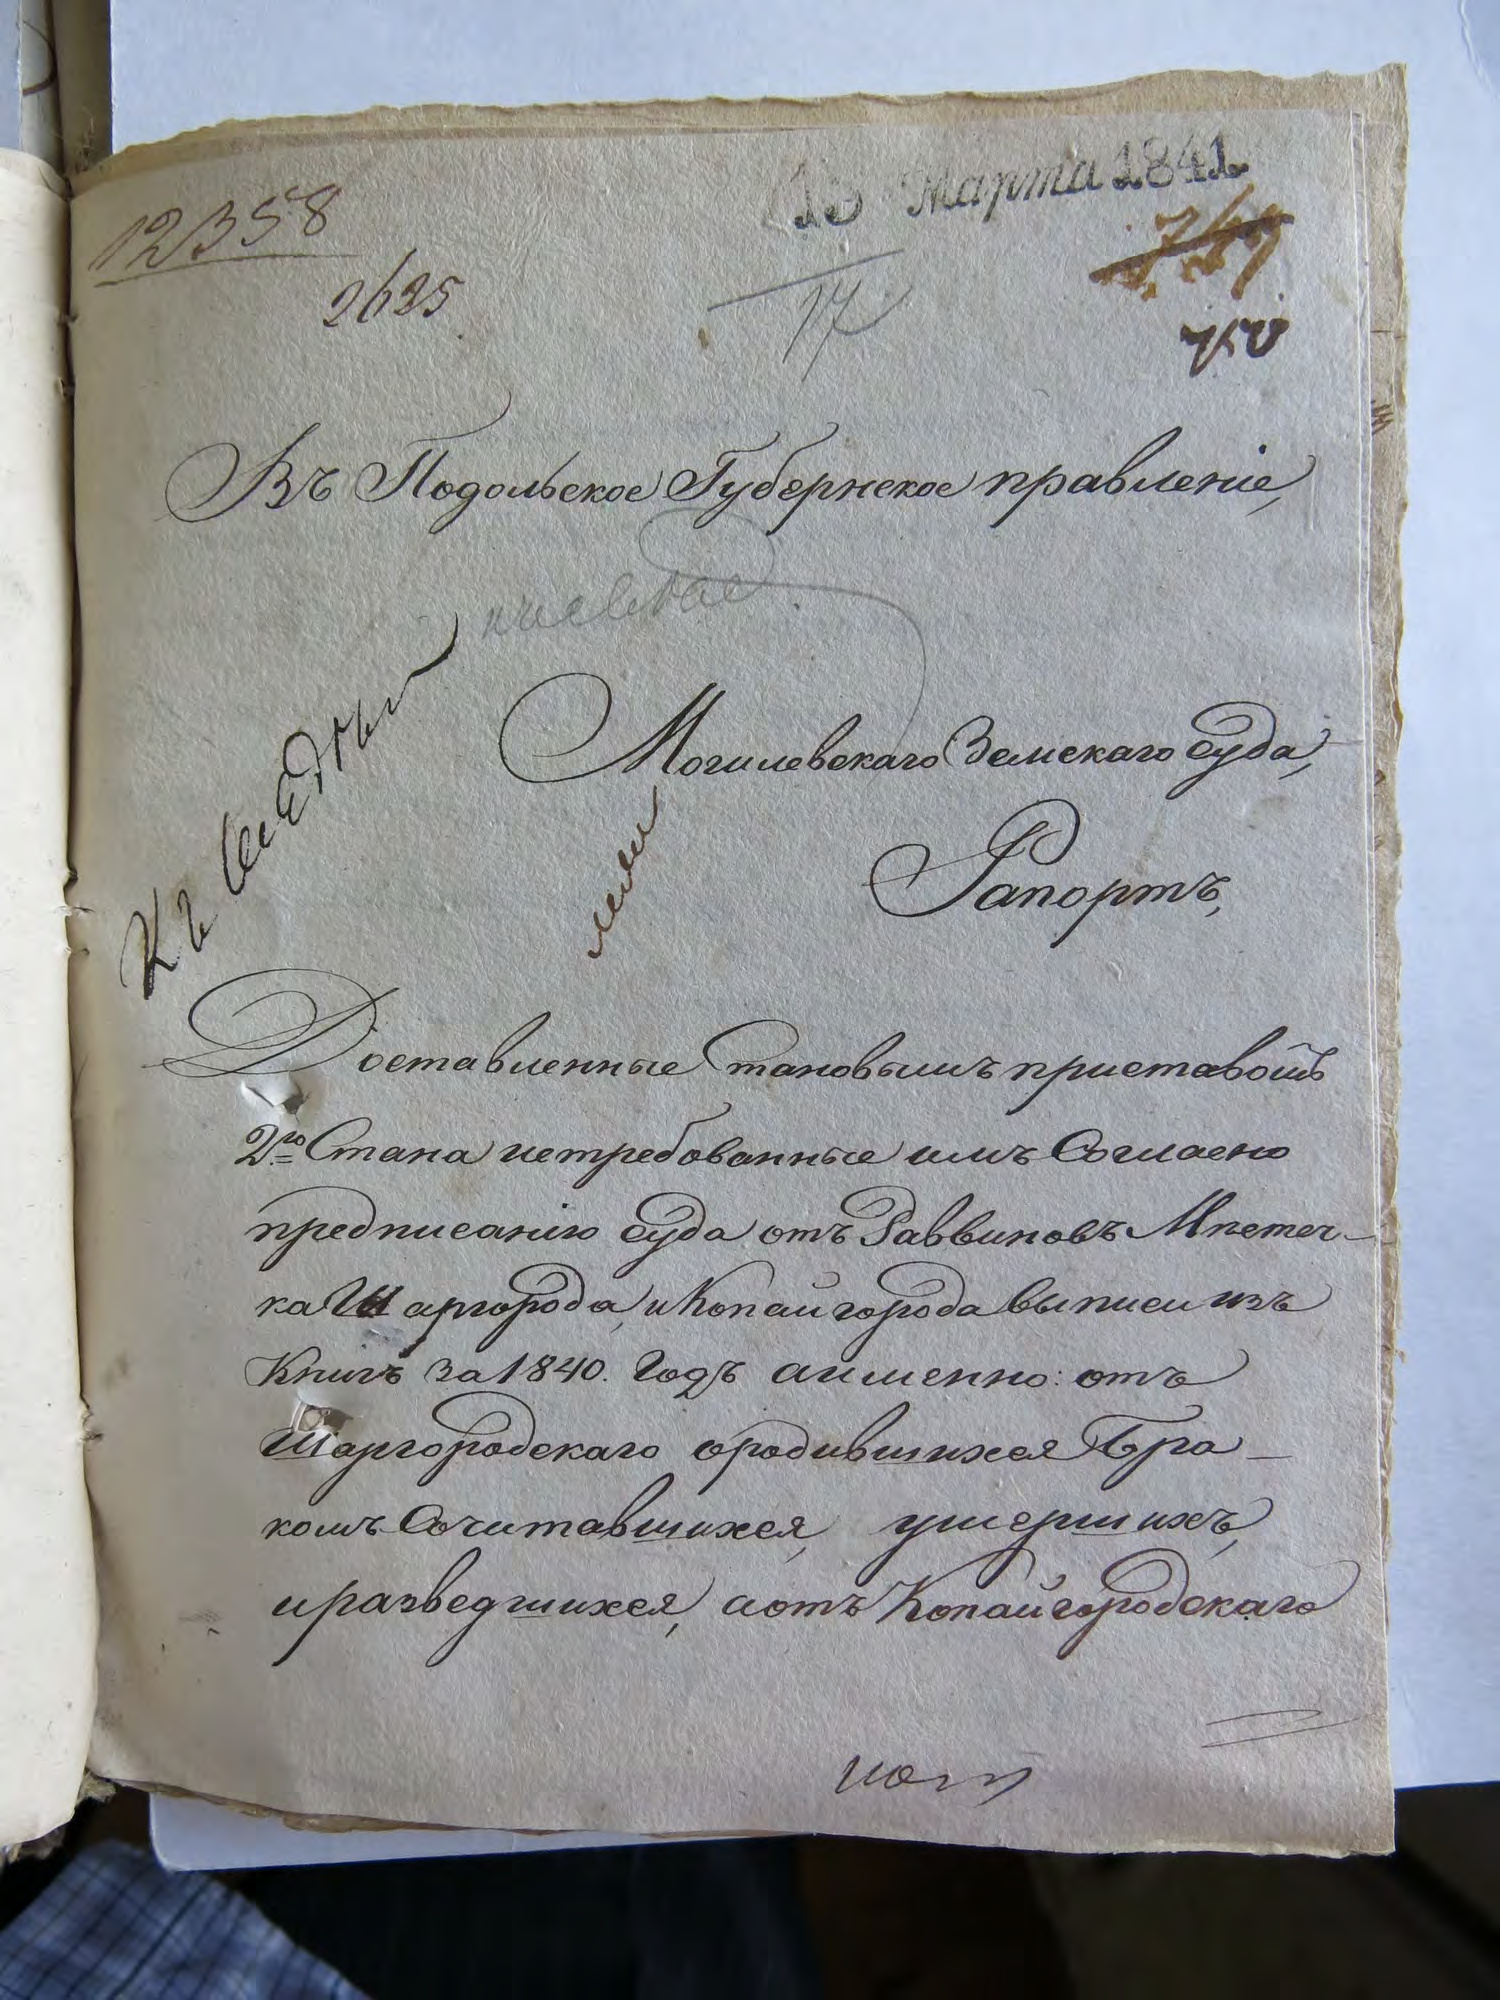 Марта 1841
12358
2625
17
Въ Подольское Губернское правленіе,
Могилевскаго Земскаго суда,
Рапортъ,
Къ
Доставленные Становымъ приставомъ
2го Стана истребованные имъ Согласно
предписанію суда отъ Раввиновъ Мѣстеч-
ка Шаргорода, и Копайгорода выписи изъ
Книгъ за 1840. Годъ аименно: отъ
Шаргородскаго ородившихся Бра-
комъ Сочитавшихся, умершихъ,
иразведшихся, аотъ Копайгородскаго